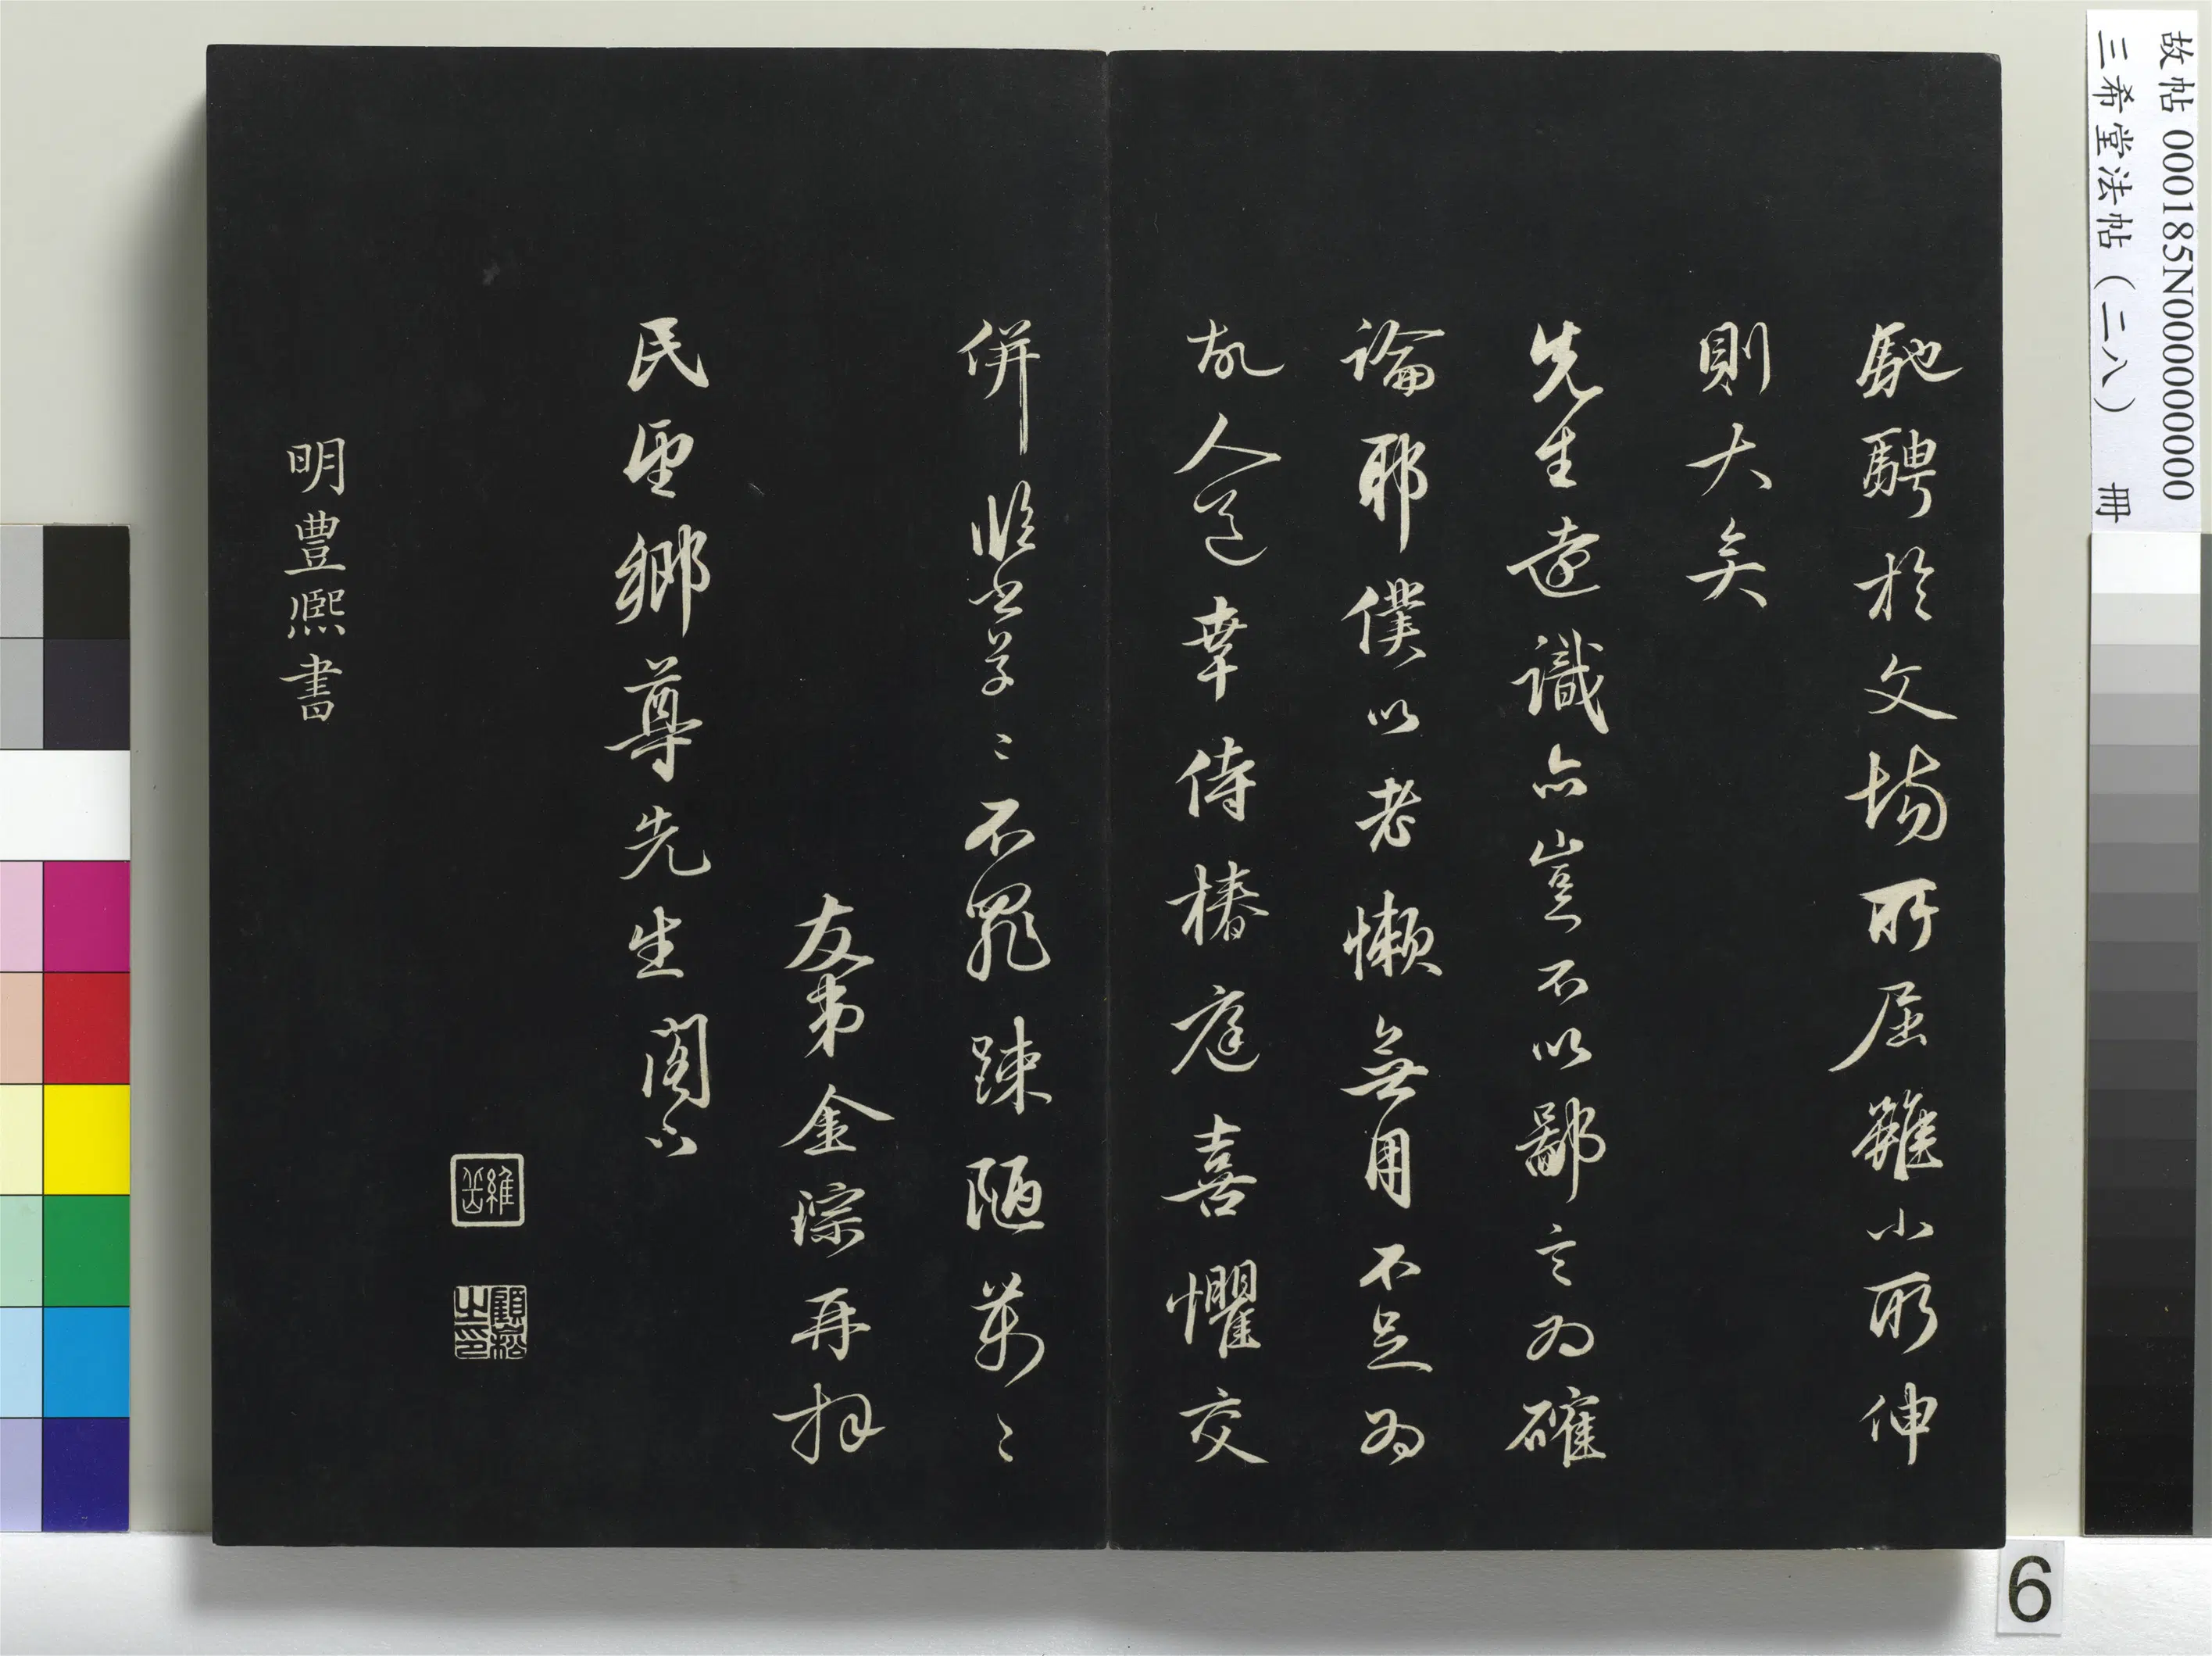 故帖 000185N000000000
三希堂法帖（二八） 冊
馳騁於文場所屈雖小所伸
則大矣
先生遠識亦豈不以鄙言為確
論耶僕以老懶無用不足為
故人道幸侍椿庭喜懼交
併臨書草〻不罪踈陋萬〻
友弟金淙再拜
民望鄉尊先生閣下
維岳
顧崧之印
明豐熙書
6